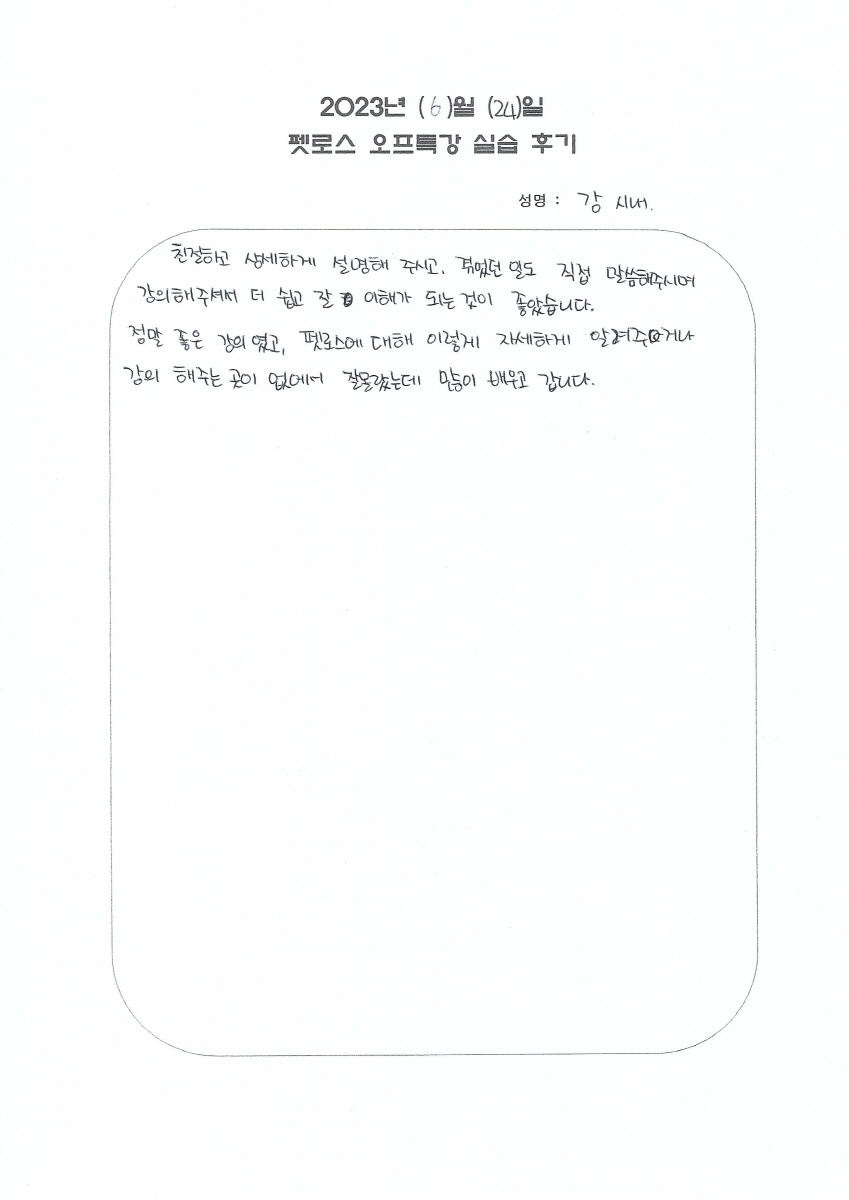 2023년 (6)월 (24)일
펫로스 오프특강 실습 후기
성명 : 강 시내.
친절하고 상세하게 설명해 주시고, 겪었던 일도 직접 말씀해주시며
강의해주셔서 더 쉽고 잘 이해가 되는 것이 좋았습니다.
정말 좋은 강의 였고, 펫로스에 대해 이렇게 자세하게 알려주거나
강의 해주는 곳이 없에서 잘몰랐는데 많이 배우고 갑니다.